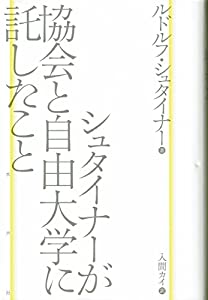 ルドルフ・シュタイナー 著
シュタイナーが
協会と自由大学に
託したこと
入間カイ 訳